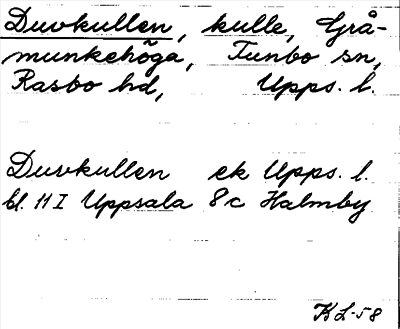 Duvkullen, kulle, Grå-
munkehöga, Tunbo sn,
Rasbo hd, Upps. l.
Duvkullen ek Upps. l.
bl. 11 I Uppsala 8c Halmby
KL-58